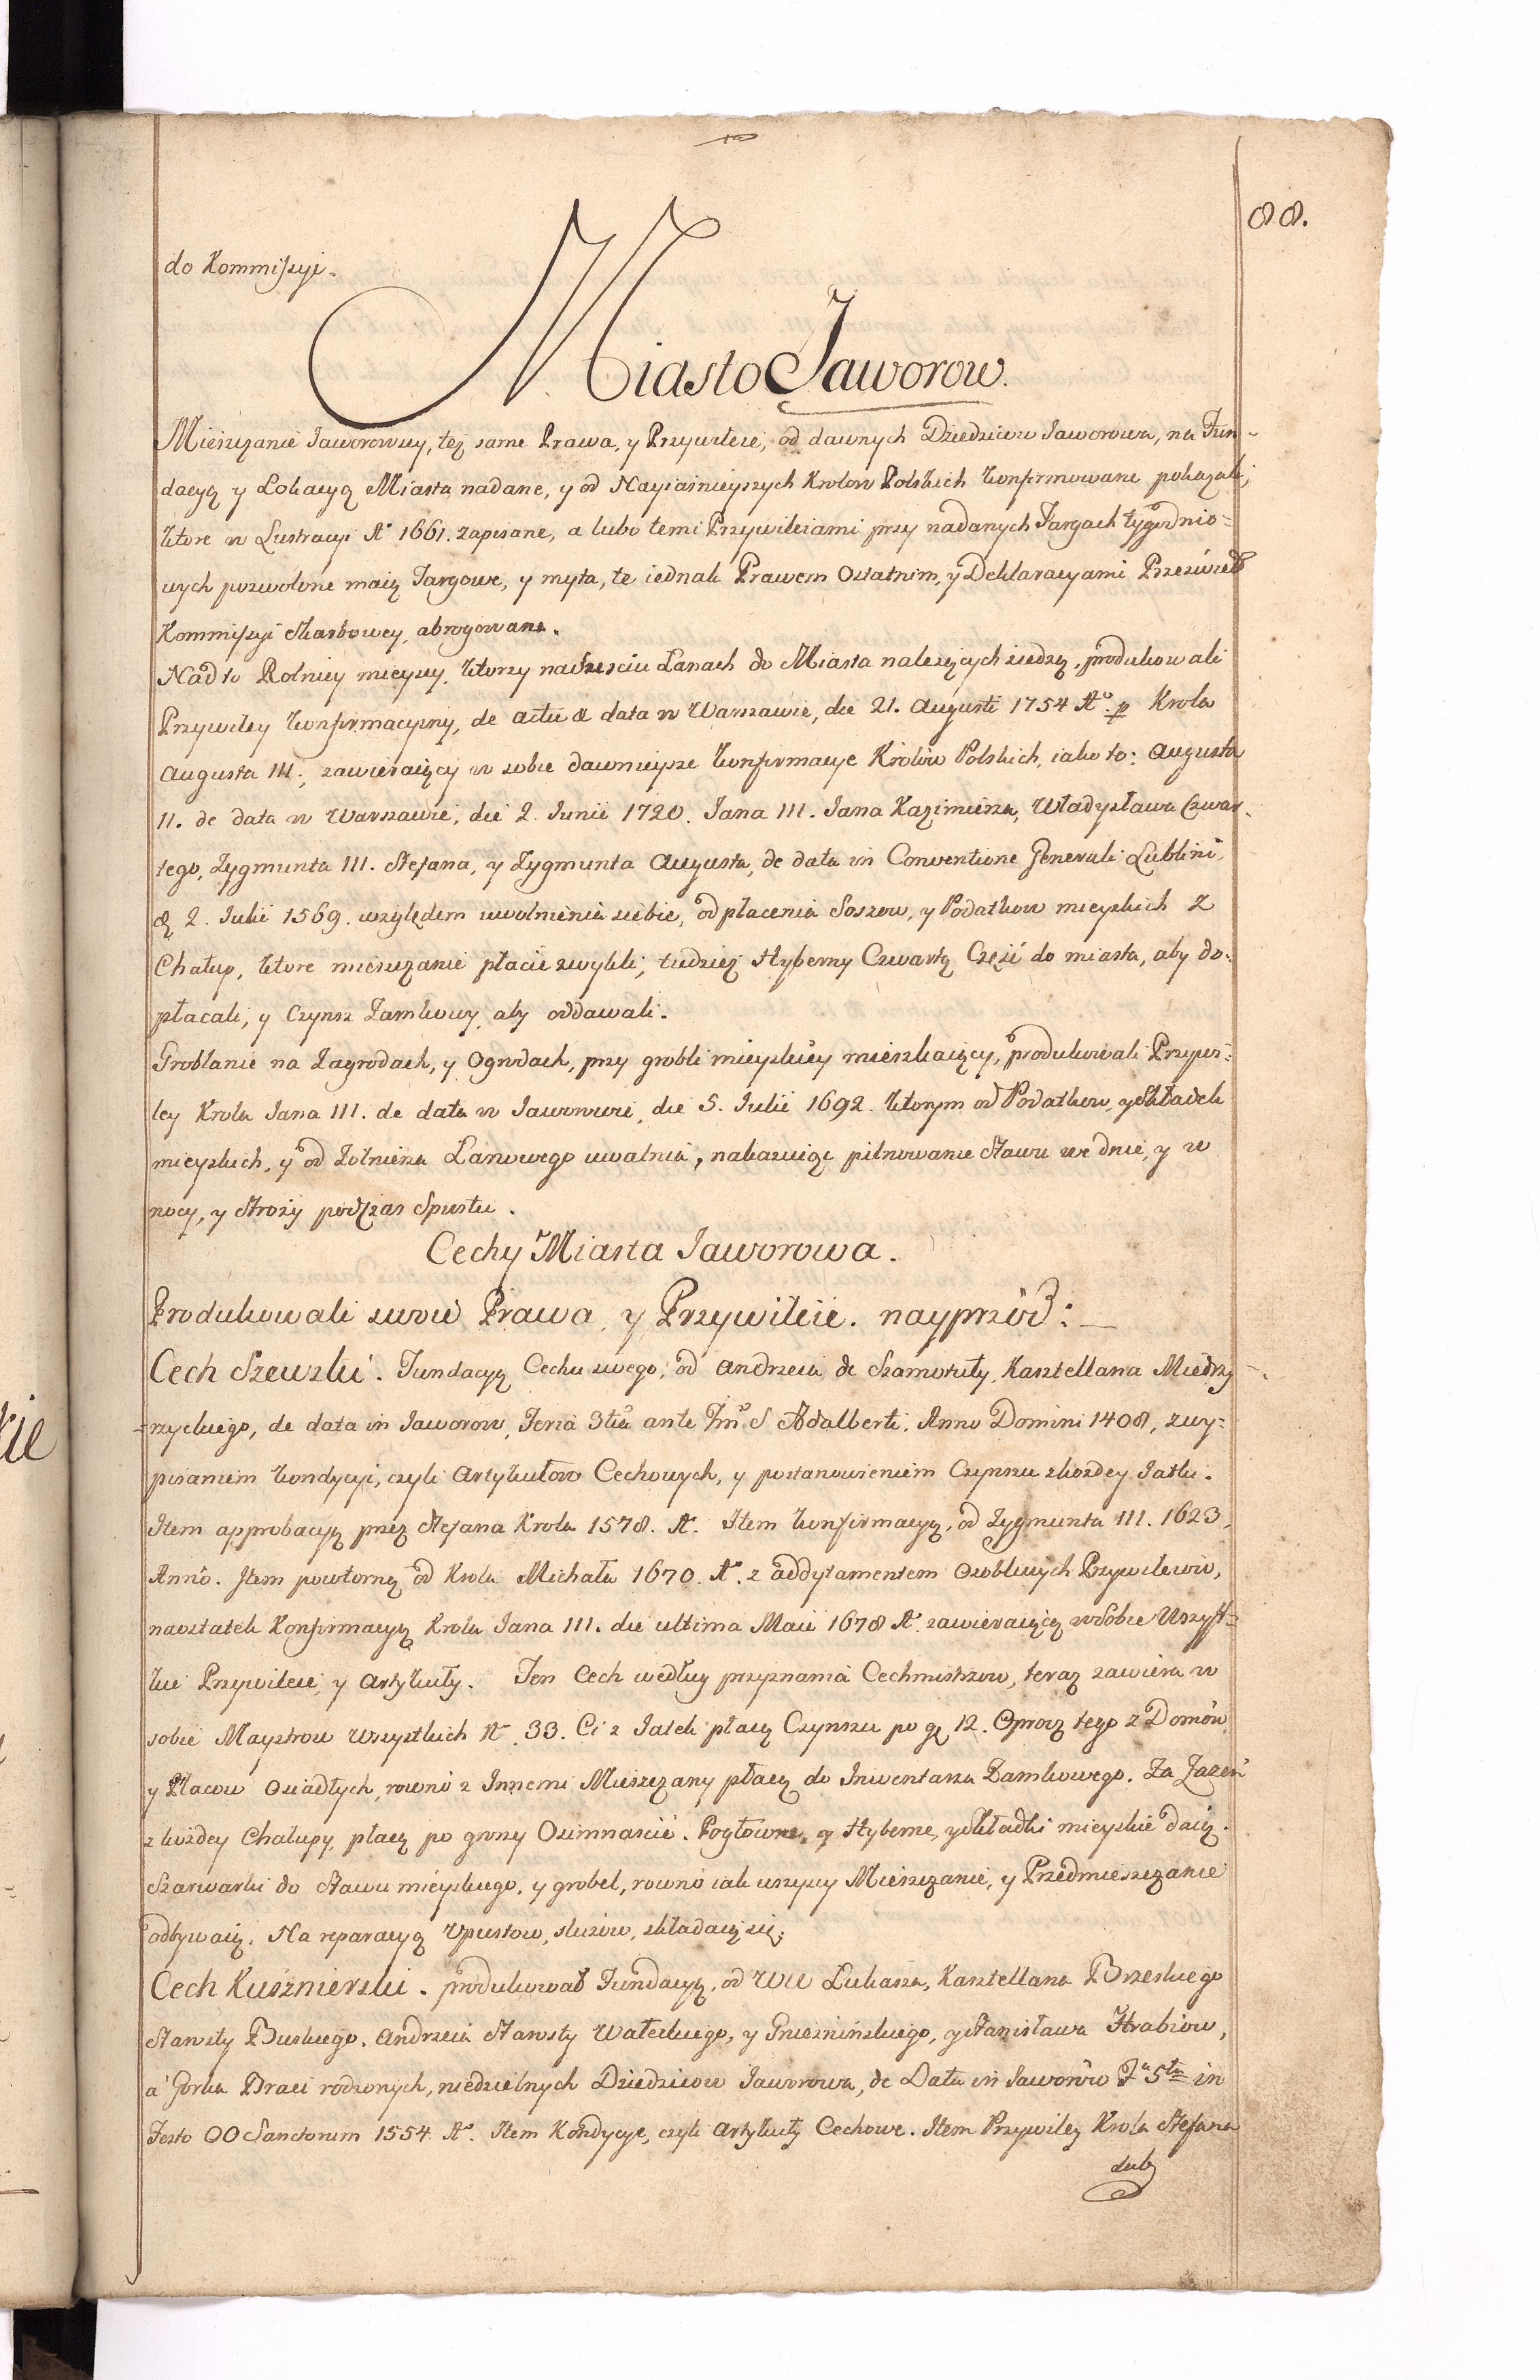 88.
do Kommiszyi.
Miasto Jaworow.
Mieszczanie Jaworowscy, też same Prawa, y Przywileie, od dawnych Dziedzicow Jaworowa, na Fun-
dacyą y Lokacyą Miasta nadane, y od Nayiaśnieyszych Krolow Polskich konfirmowane pokazali,
ktore w Lustracyi Aº 1661. zapisane, a lubo temi Przywileiami przy nadanych Targach tygodnio=
wych pozwolone maią Targowe, y myta, te iednak Prawem Ostatnim, y Deklaracyami Przeświet
Kommiszyi Skarbowey, abrogowane.
Nad to Rolnicy mieyscy, ktorzy na Sześciu Łanach do Miasta należących siedzą, produkowali
Przywiley konfirmacyiny, de actu & data w Warszawie, die 21. Augusti 1754 Aº. p Krola
Augusta III., zawieraiący w sobie dawnieysze konfirmacye Królów Polskich, iako to: Augusta
II. de data w Warszawie, die 2. Junii 1720. Jana III. Jana Kazimierza, Władysława Czwar-
tego, Zygmunta III. Stefana, y Zygmunta Augusta, de data in Conventione Generali Lublini,
2. Julii 1569. względem uwolnienia siebie, od płacenia Szosow, y Podatkow mieyskich z
Chałup, ktore mieszczanie płacić zwykli, tudzież Hyberny Czwartą Część do miasta, aby do=
płacali, y Czynsz Zamkowy, aby oddawali.
Groblanie na Zagrodach, y Ogrodach, przy grobli mieyskiey mieszkaiący, produkowali Przywi=
ley Krola Jana III. de data w Jaworowie, die 5. Julii 1692. ktorym od Podatkow, y Składek
mieyskich, y od Żołnierza Łanowego uwalnia, nakazuiąc pilnowanie Stawu we dnie, y w
nocy, y Stroży podczas Spustu.
Cechy Miasta Jaworowa.
Produkowali swoie Prawa, y Przywileie. nayprzód:
Cech Szewski. Fundacyą Cechu swego, od Andrzeia de Szamotuły, Kasztellana Miedzy
=rzyckiego, de data in Jaworow, Feria 3tia ante Fm̃ S Adalberti, Anno Domini 1408, z wy=
pisaniem kondycyi, czyli Artykułow Cechowych, y postanowieniem Czynszu z każdey Jatki.
Item approbacyą przez Stefana Krola 1578. Aº. Item konfirmacyą, od Zygmunta III. 1623,
Anno. Item powtorną od Krola Michała 1670. Aº. z addytamentem osobliwych Przywilejów,
naostatek Konfirmacyą Krola Jana III. die ultima Maii 1678 Aº. zawieraiącą w Sobie Wszyst=
kie Przywileie, y Artykuły. Ten Cech według przyznania Cechmistrzow, teraz zawiera w
sobie Maystrow wszystkich Nº. 33. Ci z Jatek płacą Czynszu po gr 12. Oprocz tego z Domów
y Placow osiadłych, rowno z Innemi Mieszczany płacą do Inwentarza Zamkowego. Za Zazeń
z każdey Chałupy, płacą po groszy Osimnaście. Pogłowne, y Hyberne, y Składki mieyskie daią.
Szarwarki do Stawu mieyskiego, y grobel, rowno iak wszyscy Mieszczanie, y Przedmieszczanie
odbywaią. Na reparacyą Upustow, sluzów, składaią się.
Cech Kuśnierski. produkował Fundacyą, od WW Łukasza, Kasztellana Brzeskiego
Starosty Buskiego, Andrzeia Starosty Wałeckiego, y Gnieźnińskiego, y Stanisława Hrabiow,
a Gorka Braci rodzonych, niedzielnych Dziedzicow Jaworowa, de Data in Jaworów Fª 5ta in
Festo OO Sanctorum 1554. Aº. Item Kondycye, czyli Artykuły Cechowe. Item Przywiley Krola Stefana